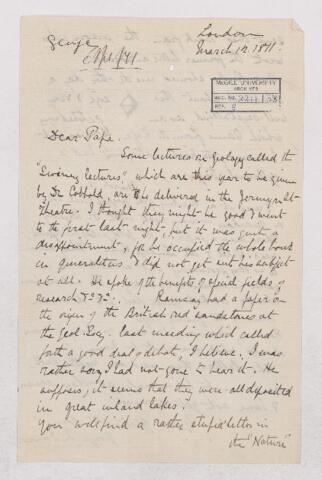 George
London
March 12. 1871
McGILL UNIVERSITY
ARCHIVES
ACC. NO.
REF.
Dear Papa.
Some lectures on geology called the
"Swiney lectures", which are this year to be given
by Dr Cobbold, are to be delivered in the Jermyn St
Theatre. I thought they might be good & went
to the first last night, but it was quite a
disappointment, for he occupied the whole hour
in generalities & did not get into his subject
at all. He spoke of the benefits of special fields of
research &c &c. Ramsay had a paper on
the origin of the British red sandstones at
the Geol. Soc. last meeting which called
forth a good deal of debate, I believe. I was
rather sorry I had not gone to hear it. He
supposes, it seems that they were all deposited
in great inland lakes.
You will find a rather stupid letter in
the "Nature"